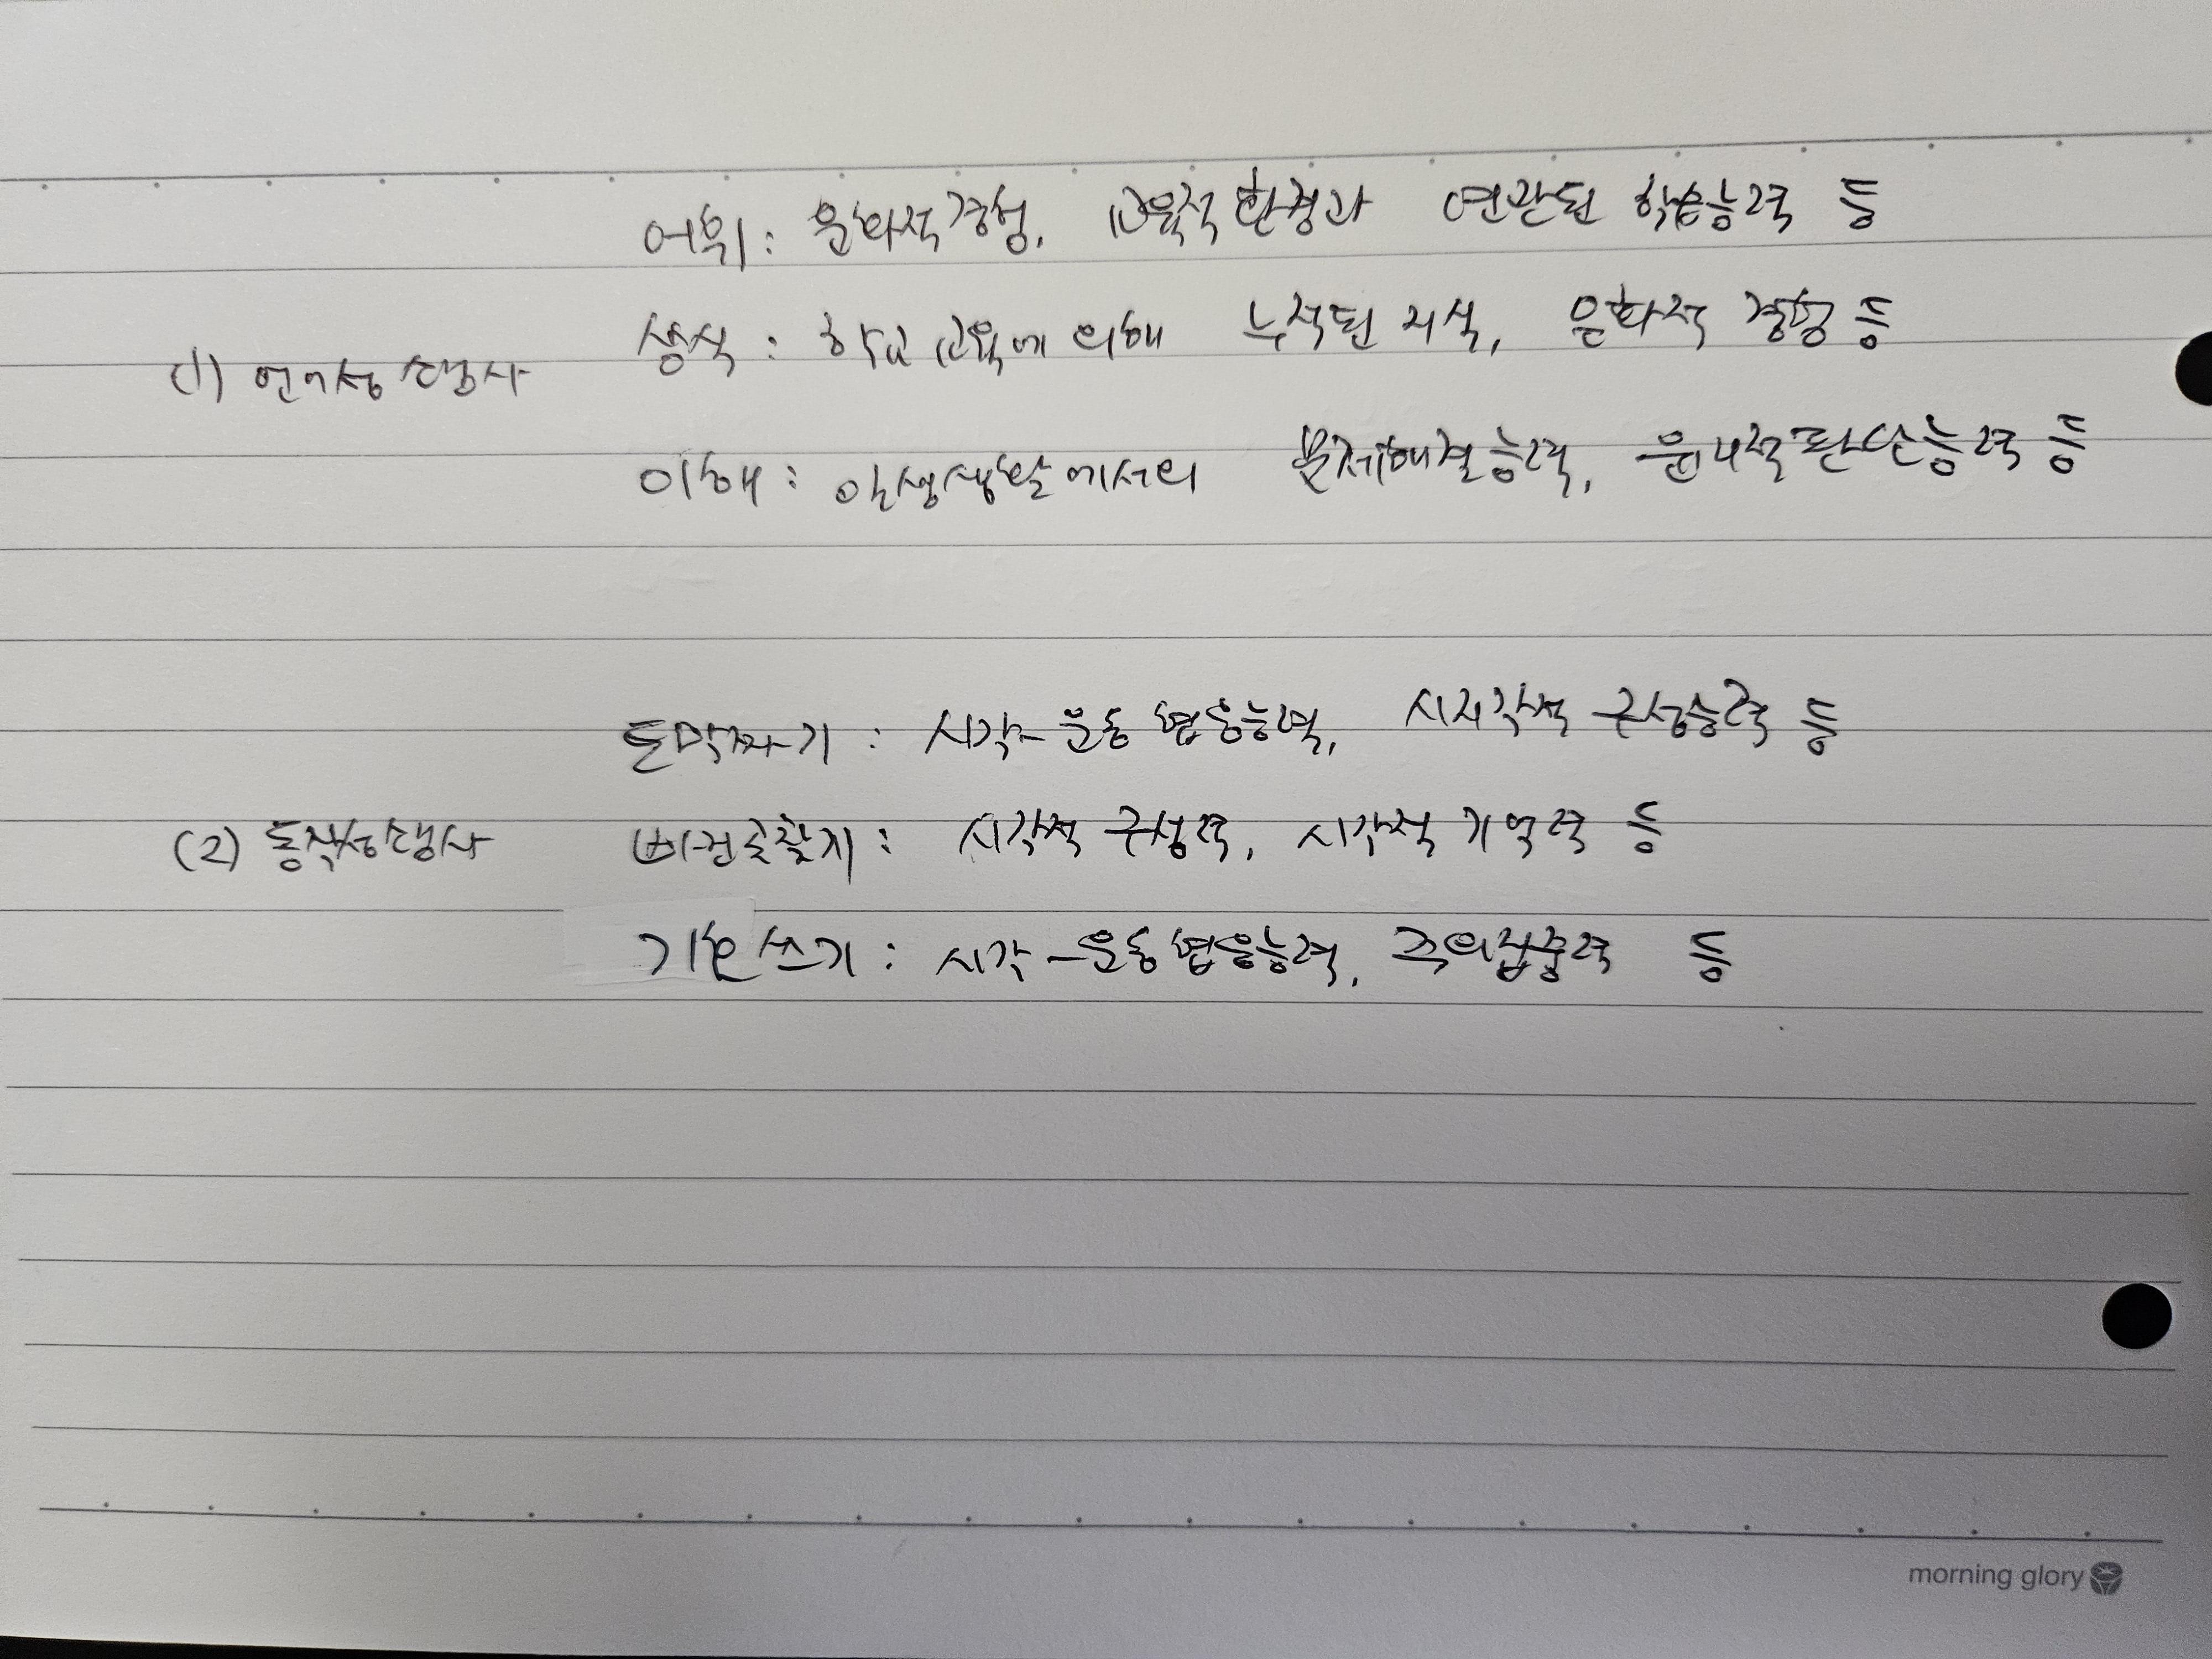 어휘 : 문화적 경험, 교육적 환경과 연관된 학습능력 등
상식 : 학교 교육에 의해 누적된 지식, 문화적 경험 등
(1) 언어성 소검사
이해 : 일상생활에서의 문제해결능력, 윤리적 판단능력 등
토막짜기 : 시각-운동 협응능력, 시지각적 구성능력 등
(2) 동작성 소검사 빠진곳찾기 : 시각적 구성력, 시각적 기억력 등
기호쓰기 : 시각-운동 협응능력, 주의집중력 등
morning glory